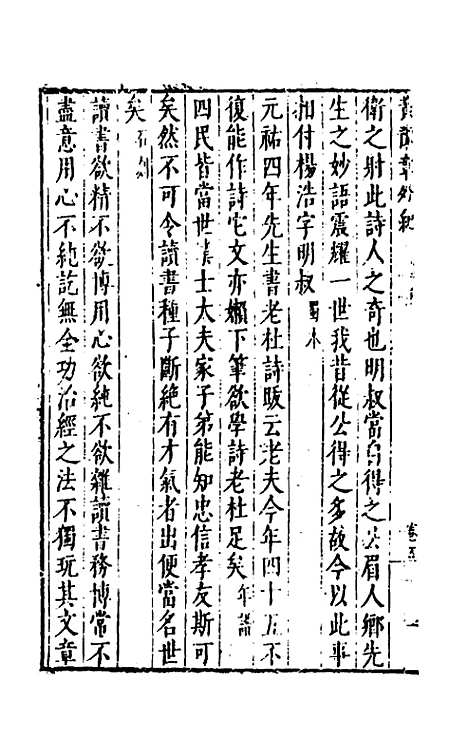 衛之射此詩人之奇也明叔當自得之公眉人鄉先
生之妙語震耀一世我昔從公得之多故今以此事
相付楊浩字明叔蜀本
元祐四年先生書老杜詩跋云老夫今年四十五不
復能作詩它文亦懶下筆欲學詩老杜足矣年譜
四民皆當世業士大夫家子弟能知忠信孝友斯可
矣然不可令讀書種子斷絕有才氣者出便當名世
矣石刻
讀書欲精不欲博用心欲純不欲雜讀書務博常不
盡意用心不純訖無全功治經之法不獨玩其文章